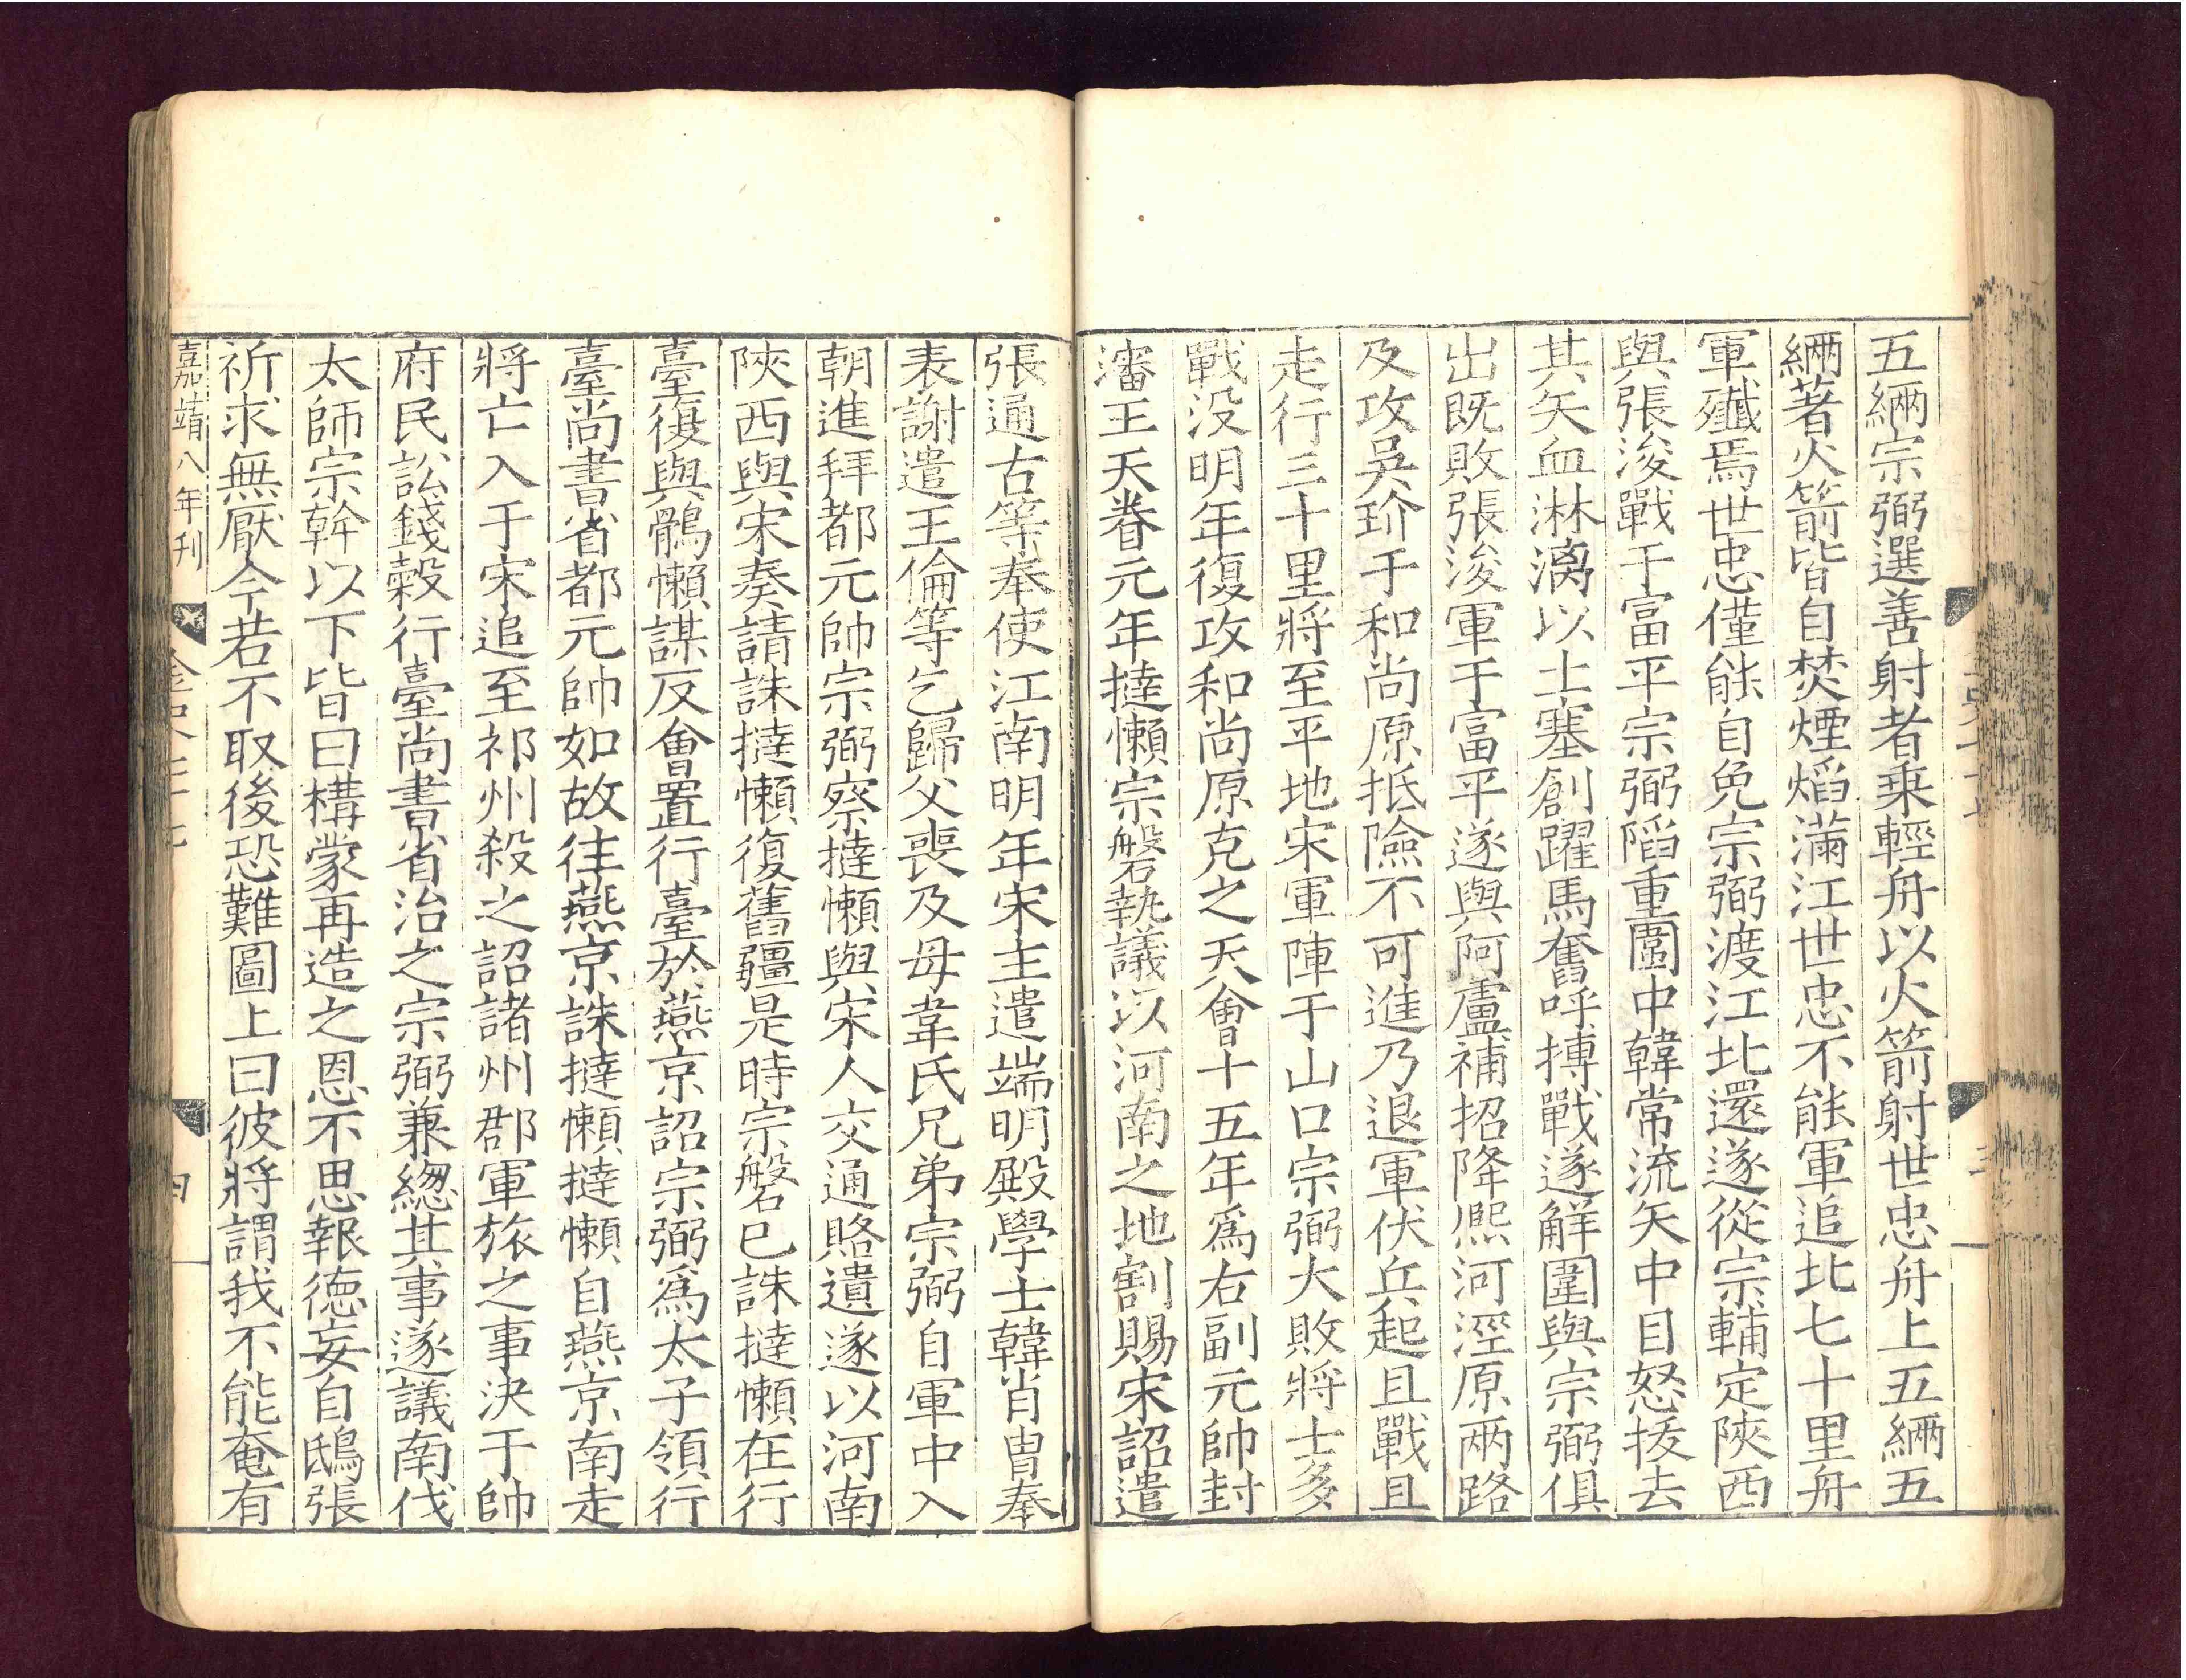 五緉宗弼選善射者乗輕舟以火箭射世忠舟上五緉五
緉著火箭皆自焚煙焰滿江世忠不能軍追北七十里舟
軍殲焉世忠僅能自免宗弼渡江北還遂從宗輔定陝西
與張浚戰于富平宗弼陷重圍中韓常流矢中目怒拔去
其矢血淋漓以土塞創躍馬奮呼搏戰遂解圍與宗弼俱
出既敗張浚軍于富平遂與阿盧補招降熈河涇原兩路
及攻吳玠于和尚原抵險不可進乃退軍伏兵起且戰且
走行三十里將至平地宋軍陣于山口宗弼大敗將士多
戰没明年復攻和尚原克之天會十五年爲右副元帥封
瀋王天眷元年撻懶宗磐執議以河南之地割賜宋詔遣
張通古等奉使江南明年宋主遣端明殿學士韓肖胄奉
表謝遣王倫等乞歸父喪及母韋氏兄弟宗弼自軍中入
朝進拜都元帥宗弼察撻懶與宋人交通賂遺遂以河南
陝西與宋奏請誅撻懶復舊疆是時宗磐已誅撻懶在行
臺復與鶻懶謀反會置行臺於燕京詔宗弼爲太子領行
臺尚書省都元帥如故往燕京誅撻懶撻懶自燕京南走
將亡入于宋追至祁州殺之詔諸州郡軍旅之事決于帥
府民訟錢榖行臺尚書省治之宗弼兼緫其事遂議南伐
太師宗幹以下皆曰構蒙再造之恩不思報德妄自鴟張
祈求無厭今若不取後恐難圖上曰彼將謂我不能奄有
嘉靖八年刊
四